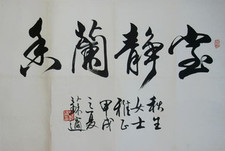 室静蘭香
秋生
女士
雅正
甲戌
之夏
蘇適